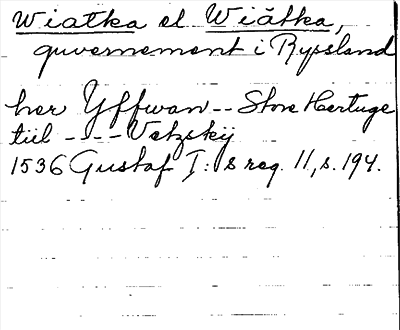 Wiatka el Wiåtka,
guvernement i Ryssland
her Yffwan -- Store Hertuge
tiil - - - - Vetzskij
1536 Gustaf I:s reg. 11, s. 194.